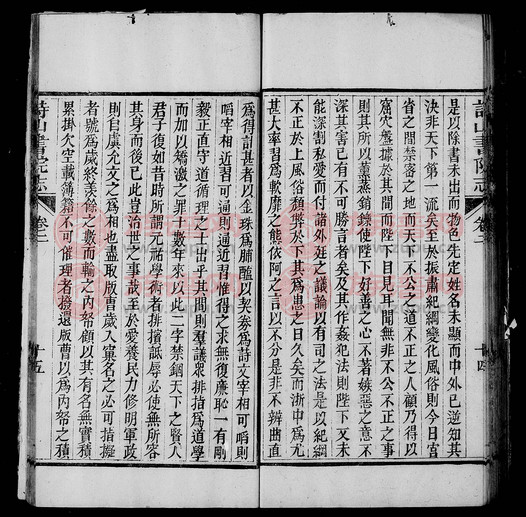 詩山書院志
卷二
十四
是以除書未出而物色先定姓名未顯而中外已逆知其
決非天下第一流矣至於振肅紀綱變化風俗則今日宮
省之間禁密之地而天下不公之道不正之人顧乃得以
窟穴盤據於其間而陛下目見耳聞無非不公不正之事
則其所以薰蒸銷鑠使陛下好善之心不著嫉惡之意不
深其害已有不可勝言者矣及其作姦犯法則陛下又未
能深割私愛而付諸外廷之議論以有司之法是以紀綱
不正於上風俗頹弊於下其為患之日久矣而浙中為尤
甚大率習為軟靡之態依阿之言以不分是非不辨曲直
為得計甚者以金珠為脯醢以契券為詩文宰相可啗則
啗宰相近習可通則通近習惟得之求無復廉恥一有剛
毅正直守道循理之士出乎其間則羣議眾排指為道學
而加以矯激之罪十數年來以此二字禁錮天下之賢人
君子復如昔時所謂元祐學術者排擯詆辱必使無所容
其身而後已此豈治世之事哉至於愛養民力修明軍政
則自虞允文之為相也盡取版曹歲入窠名之必可指擬
者號為歲終羨餘之數而輸之內帑顧以其有名無實積
累掛欠空載簿籍不可催理者撥還版曹以為內帑之積
詩山書院志
卷二
十五